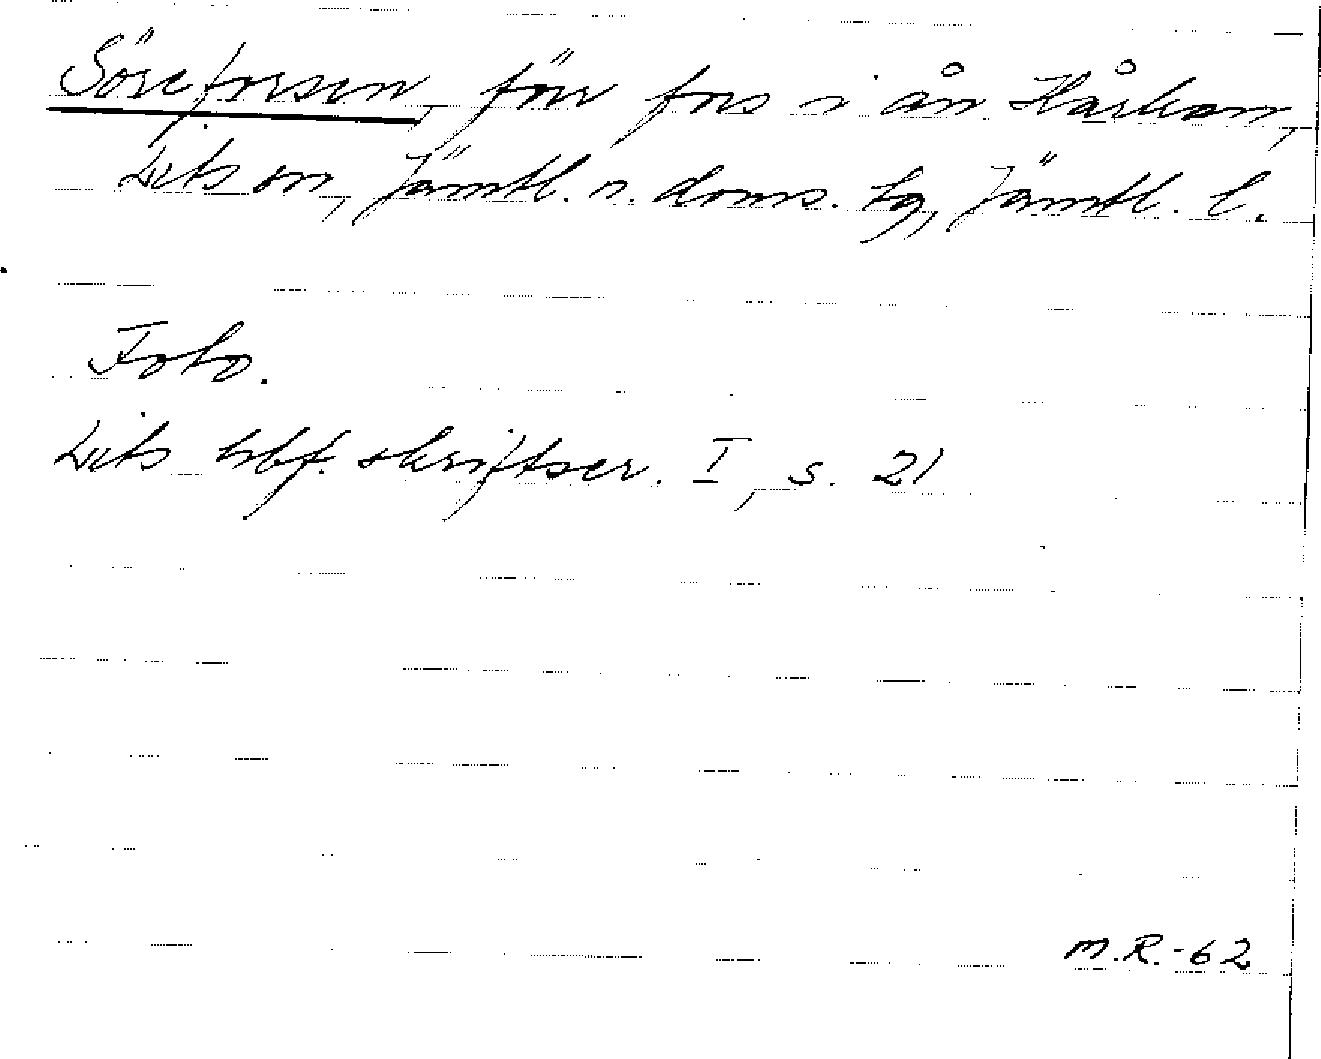 Söreforsen, förr fors i ån Hårkan,
Lits sn, Jämtl. n. doms. tg, Jämtl. l.
Foto.
Lits hbf. skriftser. I, s. 21
M.R.-62